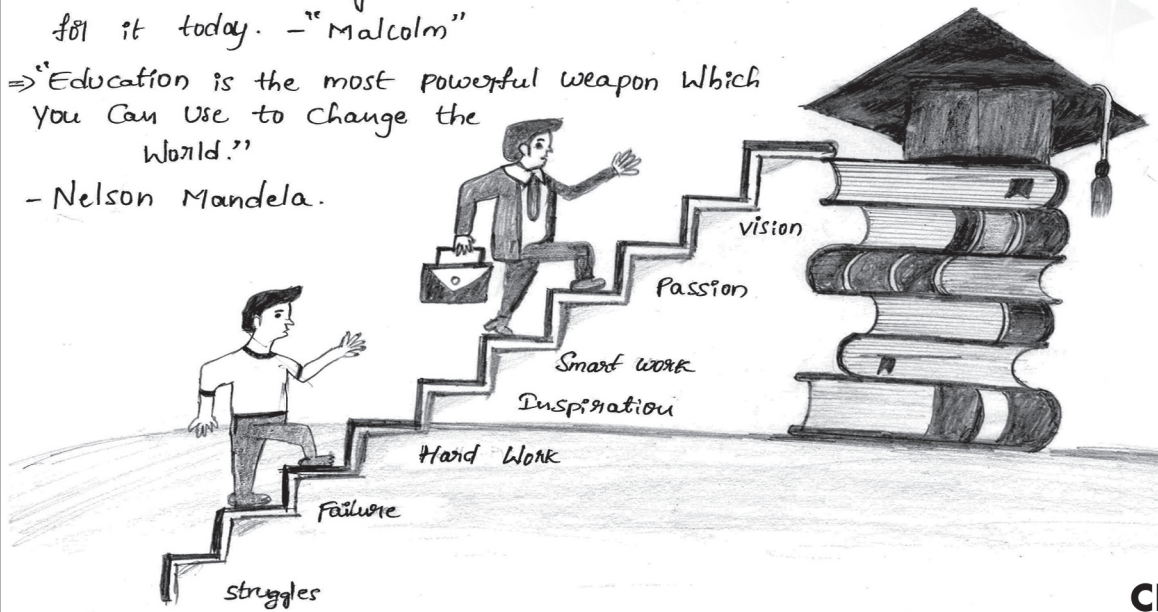 for it today. - "Malcolm"
=> "Education is the most powerful weapon Which
you Can Use to change the
World."
- Nelson Mandela.
vision
Passion
Smart work
Inspiration
Hard Work
Failure
struggles